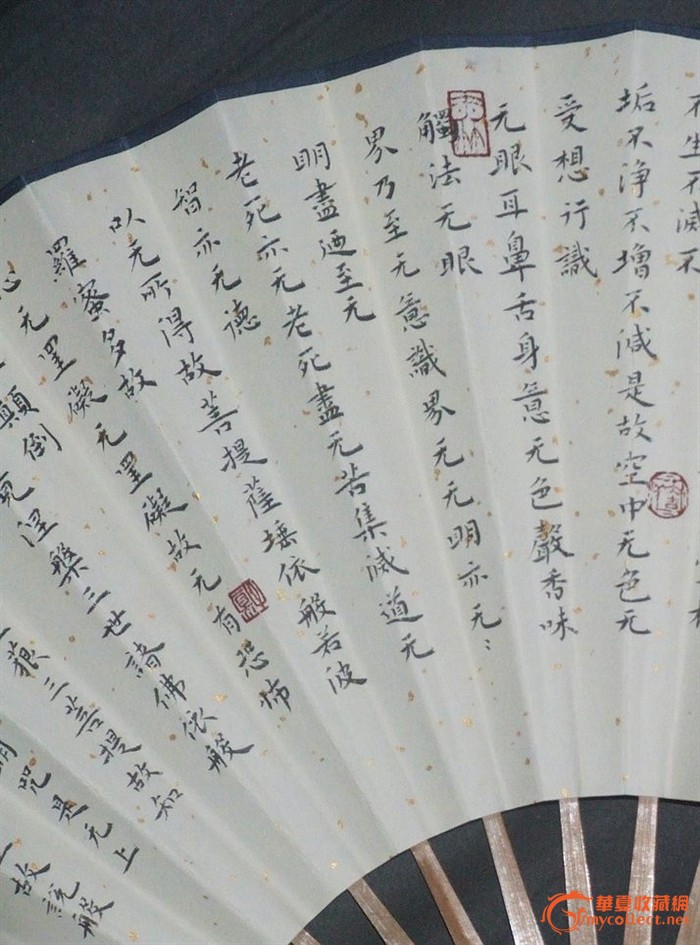 不生不滅不
垢不淨不增不減是故空中无色无
受想行識
无眼耳鼻舌身意无色聲香味
觸法无眼
界乃至无意識界无无明亦无〻
明盡迺至无
老死亦无老死盡无苦集滅道无
智亦无德
以无所得故菩提薩埵依般若波
羅蜜多故
心无罣礙无罣礙故无有恐怖
顛倒竟涅槃三世諸佛依般
三菩提故知
明咒是无上
故說般
華夏收藏網
mycollect.net